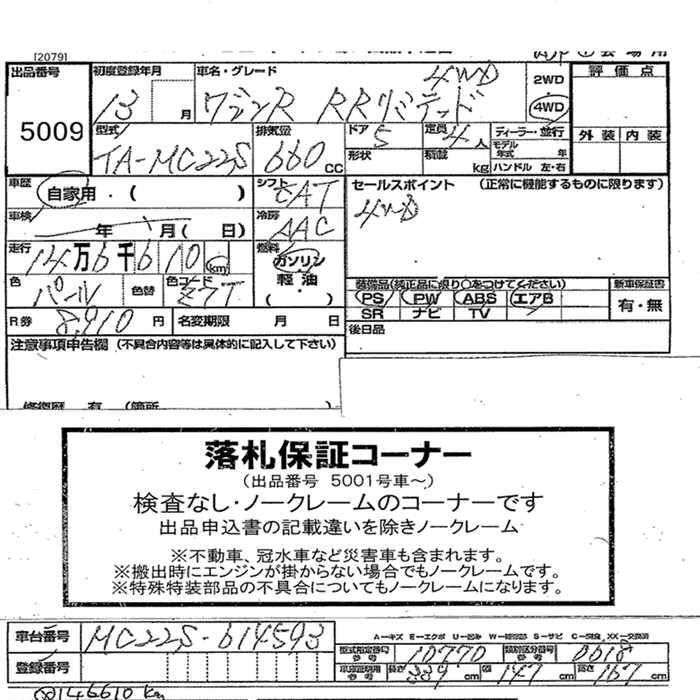 [2079]
出品番号 5009
初度登録年月 13 月
車名・グレード ワゴンR RRリミテッド 4WD
2WD
4WD
評価点
外装 内装
型式 TA-MC22S
排気量 660 cc
ドア 5
定員 4人
ディーラー・並行
形状
積載 kg
モデル年式 年
ハンドル 左・右
車歴 自家用・( )
シフト
冷房 AAC
セールスポイント (正常に機能するものに限ります)
4WD
車検 年 月(日)
走行 14万6千610 km
燃料 ガソリン
軽油
(・)
色 パール 色替
色コード
装備品(純正品に限り○をつけてください)
PS PW ABS エアB
SR ナビ TV
新車保証書
有・無
R券 8,910 円
名変期限 月 日
後日品
注意事項申告欄 (不具合内容等は具体的に記入して下さい)
修復歴 有 (箇所
落札保証コーナー
(出品番号 5001号車~)
検査なし・ノークレームのコーナーです
出品申込書の記載違いを除きノークレーム
※不動車、冠水車など災害車も含まれます。
※搬出時にエンジンが掛からない場合でもノークレームです。
※特殊特装部品の不具合についてもノークレームになります。
車台番号 MC22S-614593
登録番号
型式指定番号 参考 10770
類別区分番号 参考 0018
車庫証明用 参考 長さ 339 cm 幅 147 cm 高さ 167 cm
146610 km